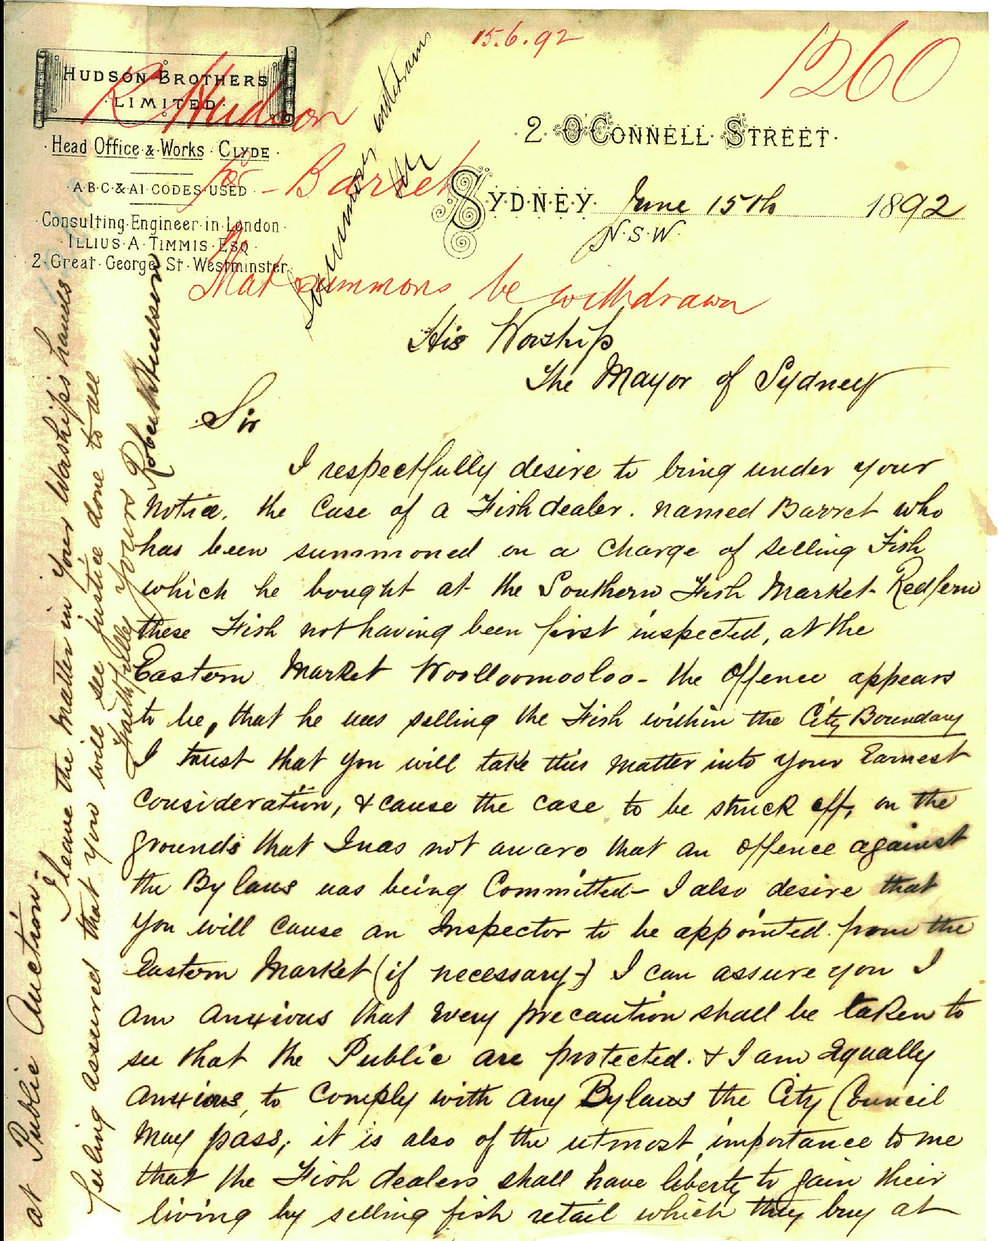 15.6.92
1260
HUDSON BROTHERS
LIMITED
Head Office & Works CLYDE
A.B.C & A1 CODES USED
Consulting Engineer in London
ILLIUS A. TIMMIS Esq
2 Great George St Westminster
R Hudson
for - Barret
That summons be withdrawn
Summons withdrawn
2 O'CONNELL STREET
SYDNEY June 15th 1892
N.S.W.
His Worship
The Mayor of Sydney
Sir
I respectfully desire to bring under your
notice, the case of a Fishdealer. named Barret who
has been summoned on a charge of selling Fish
which he bought at the Southern Fish Market - Redfern
these Fish not having been first inspected, at the
Eastern Market Woolloomooloo - the Offence appears
to be, that he was selling the Fish within the City Boundary
I trust that you will take this matter into your Earnest
Consideration, & cause the case to be struck off, on the
grounds that I was not aware that an offence against
the By laws was being Committed - I also desire that
you will cause an Inspector to be appointed from the
Eastern Market (if necessary -) I can assure you I
am anxious that every precaution shall be taken to
see that the Public are protected. & I am Equally
anxious, to comply with any Bylaws the City Council
may pass; it is also of the utmost importance to me
that the Fish dealers shall have liberty to gain their
living by selling fish retail which they buy at
at Public Auction -
I leave the matter in your Worship's hands
feeling assured that you will see justice done to all
Faithfully yours
Robert Hudson